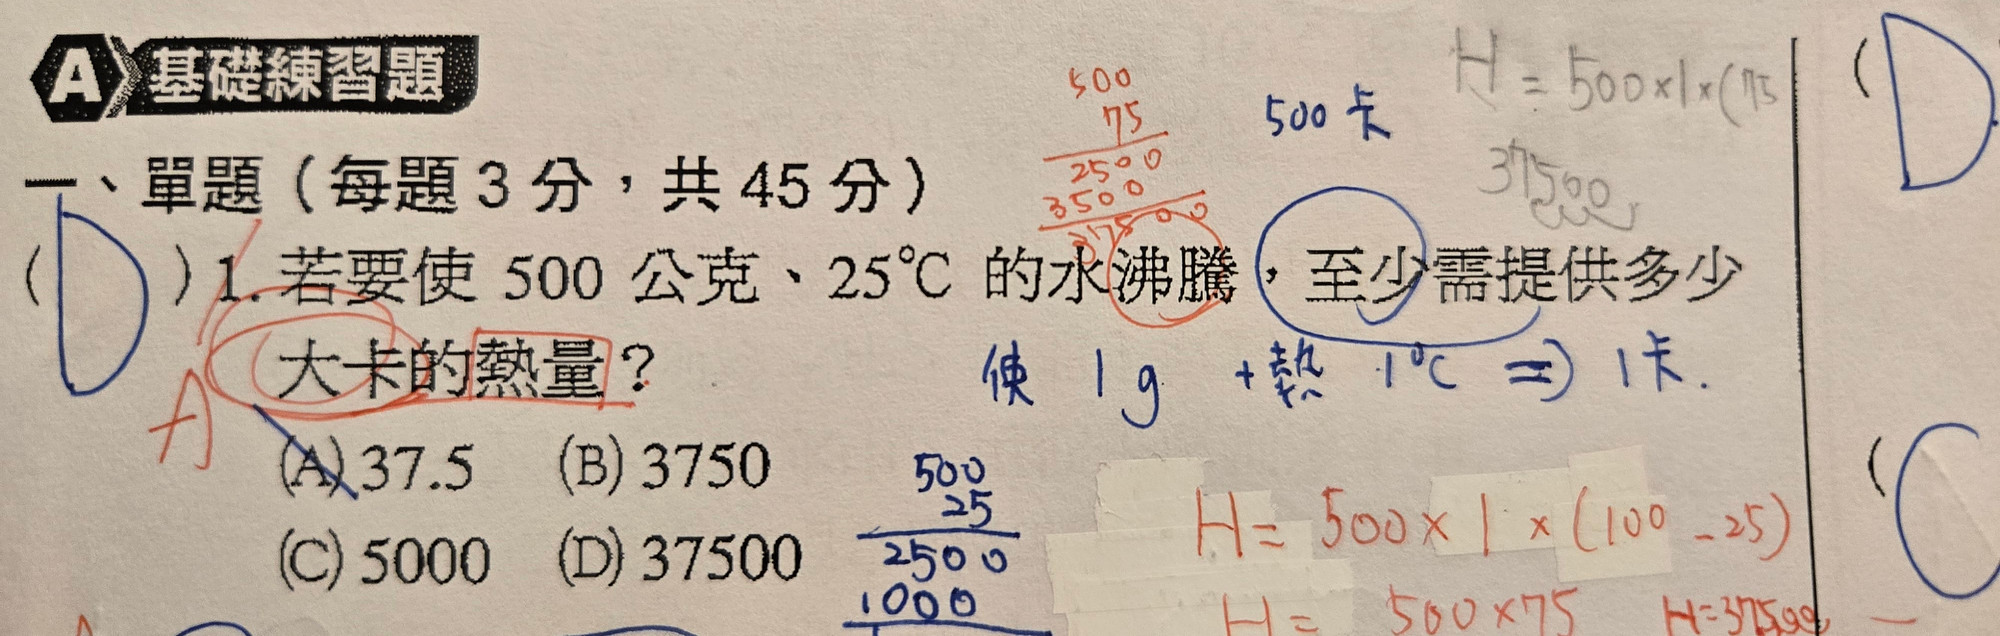 A 基礎練習題
一、單題（每題 3 分，共 45 分）
(D) 1. 若要使 500 公克、25℃ 的水沸騰，至少需提供多少
大卡的熱量？
A
(A) 37.5 (B) 3750
(C) 5000 (D) 37500
500
75
2500
3500
37500
500 卡
H = 500×1×(75
37500
使 1g +熱 1℃ ⇒ 1卡.
500
25
2500
1000
H = 500 × 1 × (100 - 25)
H = 500×75 H=37500
(D
(C